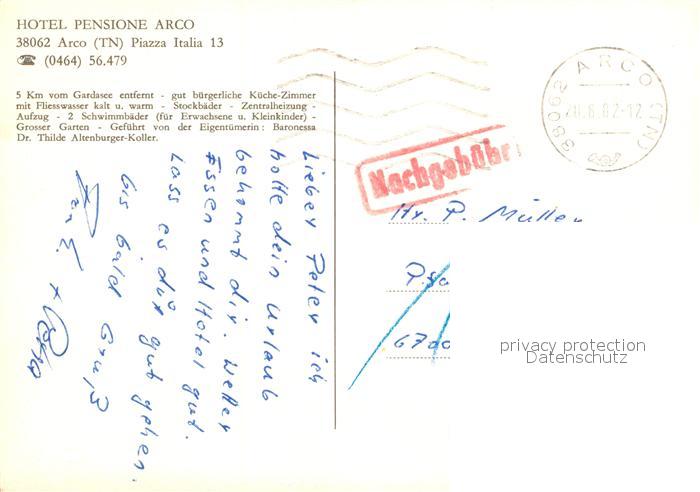 HOTEL PENSIONE ARCO
38062 Arco (TN) Piazza Italia 13
☎ (0464) 56.479
5 Km vom Gardasee entfernt - gut bürgerliche Küche-Zimmer
mit Fliesswasser kalt u. warm - Stockbäder - Zentralheizung -
Aufzug - 2 Schwimmbäder (für Erwachsene u. Kleinkinder) -
Grosser Garten - Geführt von der Eigentümerin: Baronessa
Dr. Thilde Altenburger-Koller.
38062 ARCO (TN)
20.8.82-12
Nachgebühr
Hr. P. Müller
670
privacy protection
Datenschutz
Lieber Peter ich
hoffe dein Urlaub
bekommt dir. Wetter
Essen und Hotel gut.
Lass es dir gut gehen.
bis bald Gruß